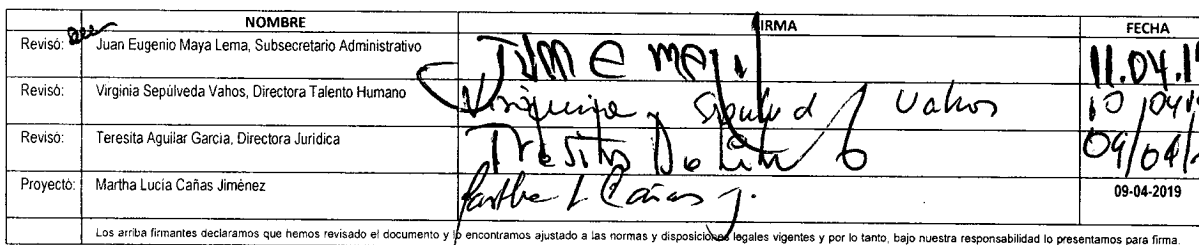 NOMBRE FIRMA FECHA
Revisó: Juan Eugenio Maya Lema, Subsecretario Administrativo 11.04.1
Revisó: Virginia Sepúlveda Vahos, Directora Talento Humano Vahos 10/04/1
Revisó: Teresita Aguilar Garcia, Directora Jurídica 09/04/
Proyectó: Martha Lucía Cañas Jiménez Martha L Cañas J. 09-04-2019
Los arriba firmantes declaramos que hemos revisado el documento y lo encontramos ajustado a las normas y disposiciones legales vigentes y por lo tanto, bajo nuestra responsabilidad lo presentamos para firma.